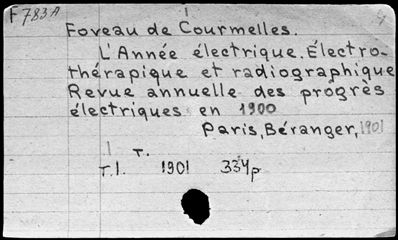 F 783A
Foveau de Courmelles.
L'Année électrique. Électro-
thérapique et radiographique
Revue annuelle des progrès
électriques en 1900
Paris, Béranger, 1901
1 т.
т.1. 1901 334p